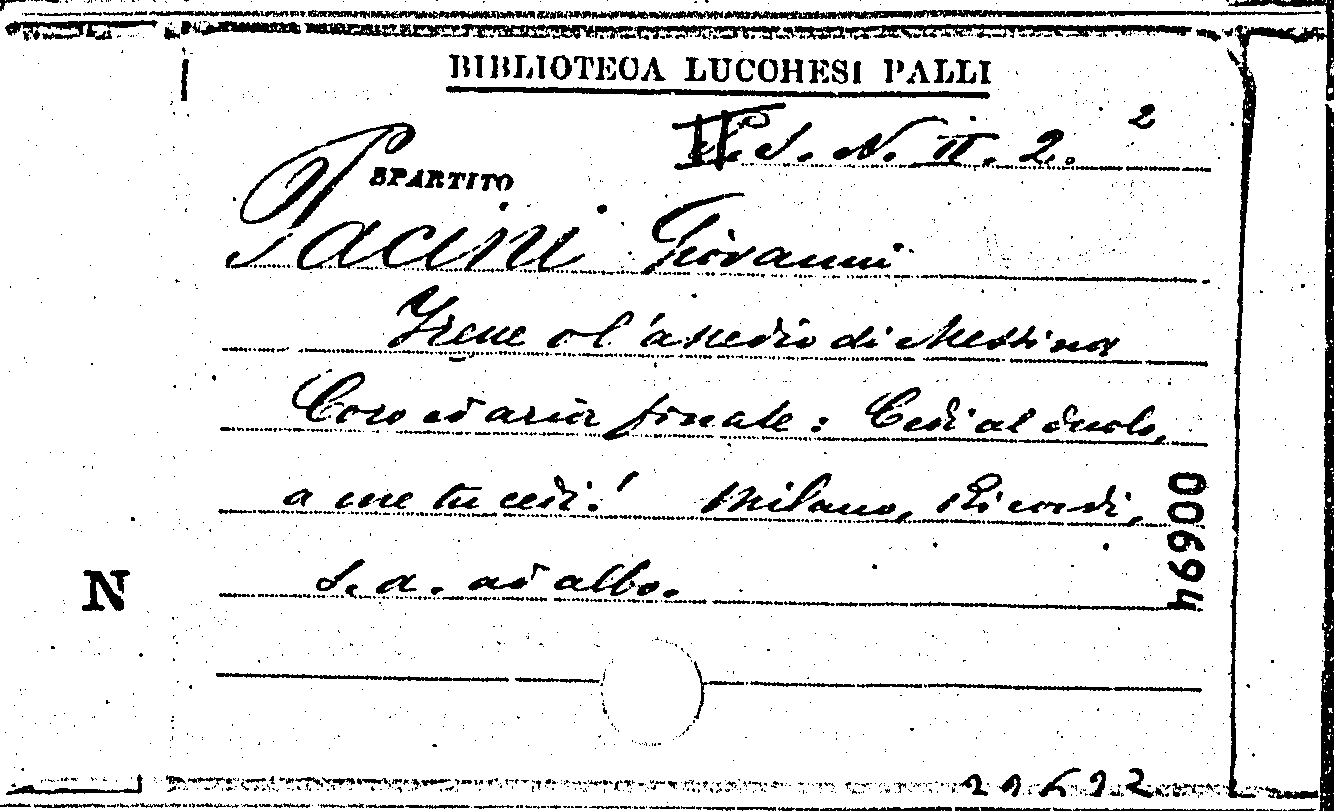 BIBLIOTECA LUCCHESI PALLI
S. N. II. 2. 2
SPARTITO
Pacini Giovanni
Irene o l'assedio di Messina
Coro ed aria finale: Cedi al duolo,
a me tu cedi! Milano, Ricordi,
s. a. ad albo.
N
00694